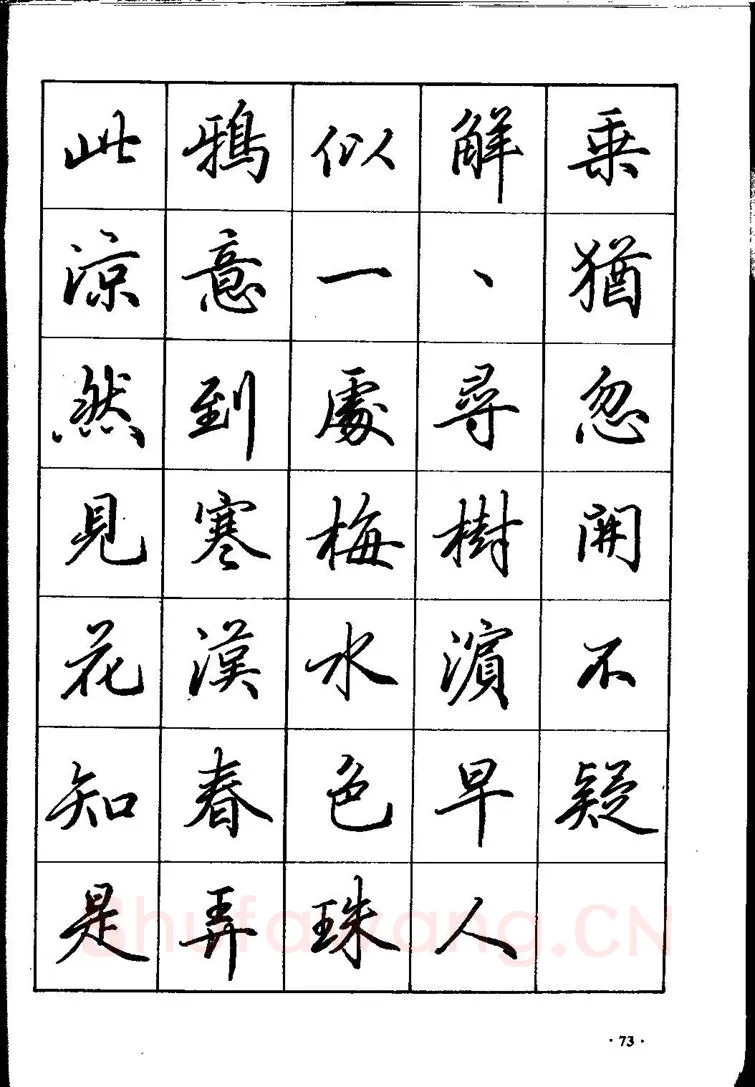 此鴉似解乘
涼意一、猶
然到處尋忽
見寒梅樹開
花漢水濱不
知春色早疑
是弄珠人
Shufawang.CN
·73·